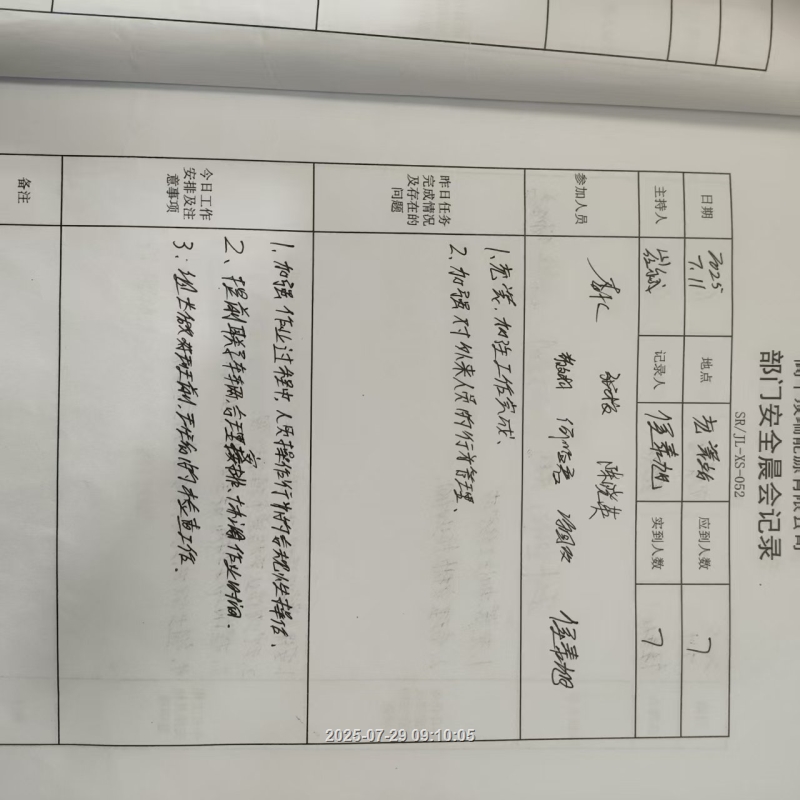 部门安全晨会记录
SR/JL-XS-052
日期 2025 7.11 地点 应到人数 7
主持人 记录人 任春旭 实到人数 7
参加人员
陈晓英
任春旭
昨日任务完成情况及存在的问题
1、充装、加注工作完成、
2、加强对外来人员的行为管理、
今日工作安排及注意事项
1、加强作业过程中,人员操作行为的合规性操作、
2、提前联系车辆,合理安排、协调作业时间.
3、班前、检查工作.
备注
2025-07-29 09:10:05